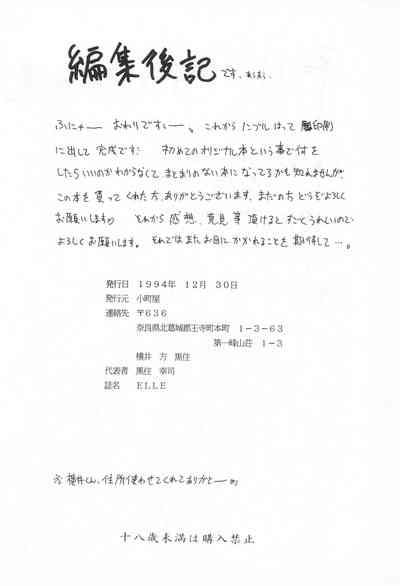 編集後記です、あしあし.
ふにゃー おわりですぅー。 これから ノンブル はって 印刷
に出して 完成です! 初めての オリジナル本という事で何を
したらいいのかわからなくて まとまりのない本になってるかも知れませんが、
この本を買ってくれた方、ありがとうございます、またのちのちどうぞよろしく
お願いします それから 感想、意見等頂けると すごくうれしいので
よろしくお願いします。 それではまたお目にかかれることを 期待して…。
発行日 1994年 12月 30日
発行元 小町屋
連絡先 〒636
奈良県北葛城郡王寺町本町 1-3-63
第一峰山荘 1-3
横井 方 黒住
代表者 黒住 幸司
誌名 ELLE
横井くん、住所使わせてくれてありがとー
十八歳未満は購入禁止